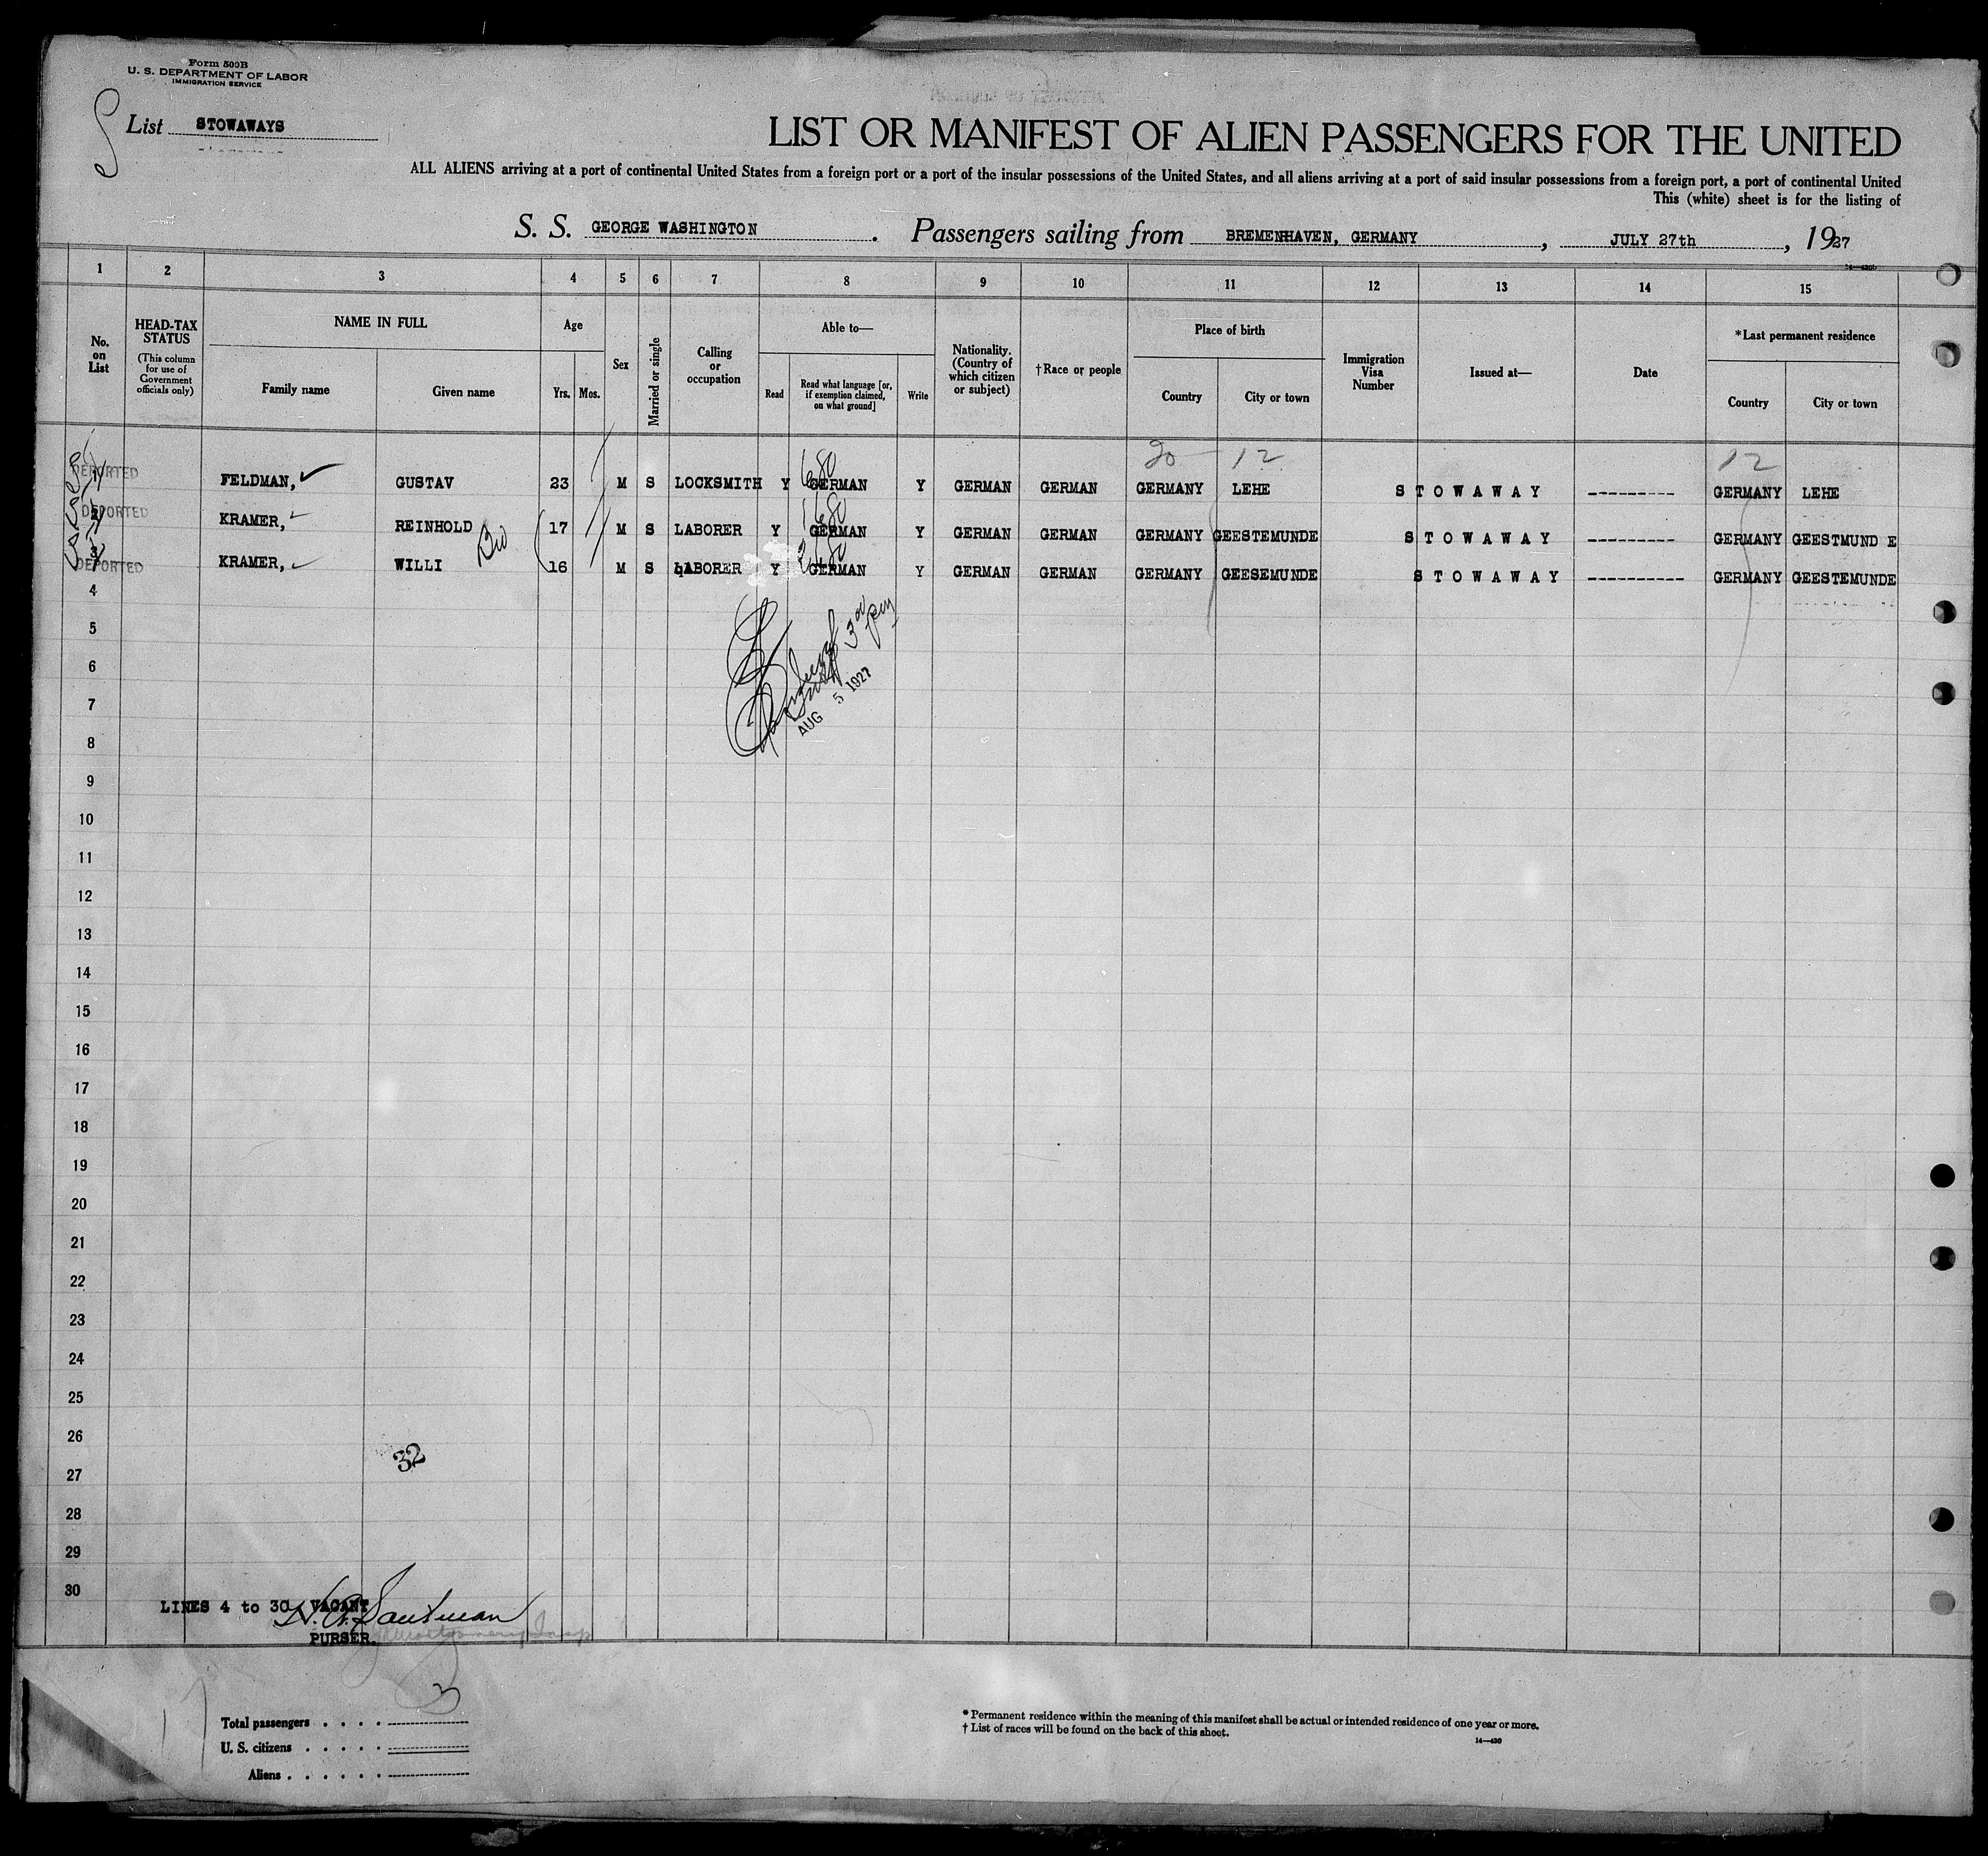 Form 500B
U. S. DEPARTMENT OF LABOR
IMMIGRATION SERVICE
List STOWAWAYS
LIST OR MANIFEST OF ALIEN PASSENGERS FOR THE UNITED
ALL ALIENS arriving at a port of continental United States from a foreign port or a port of the insular possessions of the United States, and all aliens arriving at a port of said insular possessions from a foreign port, a port of continental United
This (white) sheet is for the listing of
S. S. GEORGE WASHINGTON. Passengers sailing from BREMENHAVEN, GERMANY, JULY 27th, 1927
1 2 3 4 5 6 7 8 9 10 11 12 13 14 15
No. on List
HEAD-TAX STATUS
(This column for use of Government officials only)
NAME IN FULL
Family name
Given name
Age
Yrs. Mos.
Sex
Married or single
Calling or occupation
Able to—
Read
Read what language [or, if exemption claimed, on what ground]
Write
Nationality. (Country of which citizen or subject)
†Race or people
Place of birth
Country
City or town
Immigration Visa Number
Issued at—
Date
*Last permanent residence
Country
City or town
20 12 12
DEPORTED
1 FELDMAN, GUSTAV 23 M S LOCKSMITH Y GERMAN Y GERMAN GERMAN GERMANY LEHE STOWAWAY --------- GERMANY LEHE
DEPORTED
2 KRAMER, REINHOLD 17 M S LABORER Y GERMAN Y GERMAN GERMAN GERMANY GEESTEMUNDE STOWAWAY --------- GERMANY GEESTMUND E
Bro
3 KRAMER, WILLI 16 M S LABORER Y GERMAN Y GERMAN GERMAN GERMANY GEESEMUNDE STOWAWAY ---------- GERMANY GEESTEMUNDE
DEPORTED
4
5
6
7
AUG 5 1927
8
9
10
11
12
13
14
15
16
17
18
19
20
21
22
23
24
25
26
32
27
28
29
30
LINES 4 to 30 VACANT
PURSER.
3
Total passengers . . . .
U. S. citizens . . . . .
Aliens . . . . . .
* Permanent residence within the meaning of this manifest shall be actual or intended residence of one year or more.
† List of races will be found on the back of this sheet.
14—430